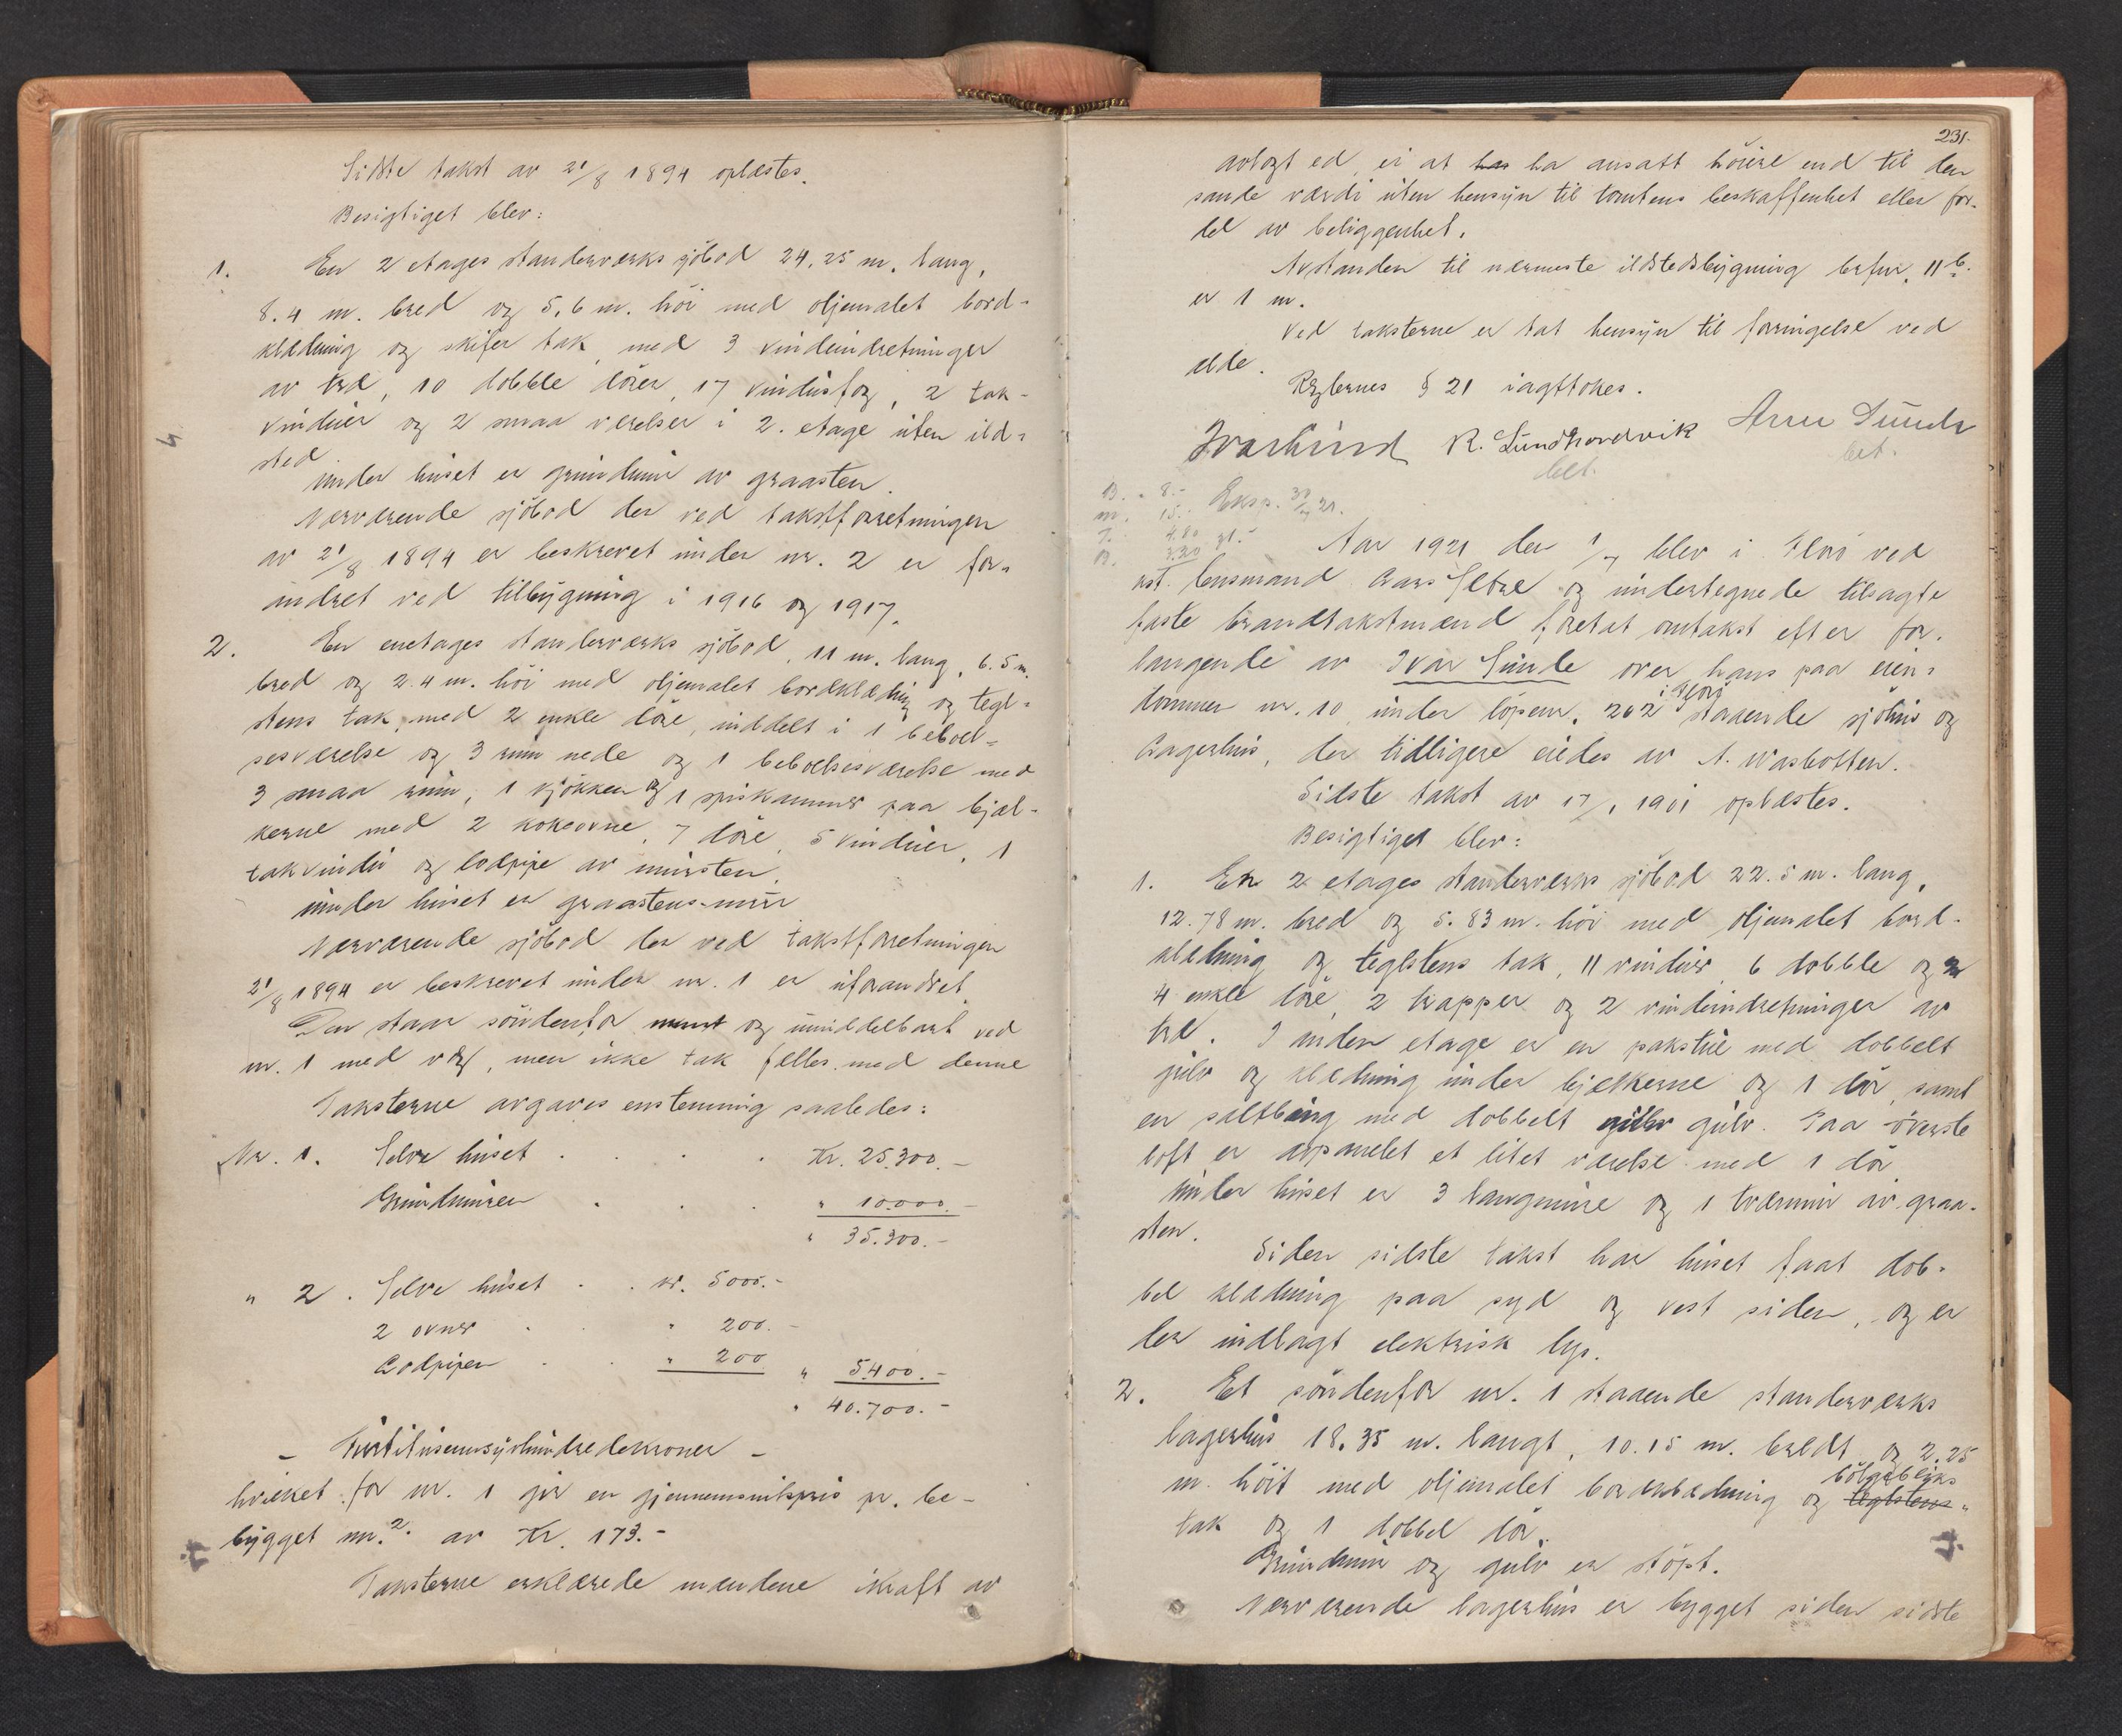 Sidste takst av 21/8 1894 oplæstes.
Besigtiget blev:
1. En 2 etages standerværks sjöbod 24,25 m. lang,
8.4 m. bred og 5,6 m. höi med oljemalet bord-
klædning og skifer tak, med 3 vindeindretninger
av træ, 10 dobble dörer, 17 vindusfog, 2 tak-
vinduer og 2 smaa værelser i 2. etage uten ild-
sted.
Under huset er grundmur av graasten.
Nærværende sjöbod der ved takstforretningen
av 21/8 1894 er beskrevet under nr. 2 er for-
andret ved tilbygning i 1916 og 1917.
2. En enetages standerværks sjöbod, 11 m. lang, 6.5 m.
bred og 2.4 m. höi med oljemalet bordklædning og tegl-
stens tak, med 2 enkle döre, inddelt i 1 beboel-
sesværelse og 3 rum nede og 1 beboelsesværelse med
3 smaa rum, 1 kjökken og 1 spiskammer paa bjæl-
kerne med 2 koksovne, 7 döre, 5 vinduer, 1
takvindu og lodpipe av mursten.
Under huset er graastens-mur
Nærværende sjöbod der ved takstforretningen
21/8 1894 er beskrevet under nr. 1 er uforandret.
Den staar söndenfor og umiddelbart ved
nr. 1 med væg, men ikke tak fælles med denne
Taksterne avgaves enstemmig saaledes:
Nr. 1. Selve huset . . . Kr. 25.300.-
Grundmuren . . . " 10.000.-
" 35.300.-
" 2. Selve huset . . kr. 5000.-
2 ovner . . " 200.-
Lodpipen . . " 200 " 5.400.-
" 40.700.-
- Firtitusensyvhundredekroner -
hvilket for nr. 1 gir en gjennemsnitspris pr. be-
bygget m.2. av Kr. 173.-
Taksterne erklærede mændene i kraft av
231.
avlagt ed, ei at has ha ansatt höiere end til den
sande værdi uten hensyn til tomtens beskaffenhet eller for-
del av beliggenhet.
Avstanden til nærmeste ildstedsbygning brfnr. 11 b.
er 1 m.
Ved taksterne er tat hensyn til forringelse ved
ælde.
Reglernes § 21 iagttokes.
Ivar Lund R. Sundhordvik Arne Sunde
bet. bet.
B. " 8.-
m. 15.- Eksp. 30/7 21.
T. 4.80
B. 3.20 31.-
Aar 1921 den 1/7 blev i Florö ved
kst. lensmand Lars Sætre og undertegnede tilsagte
faste brandtakstmænd foretat omtakst efter for-
langende av Ivar Sunde over hans paa eien-
dommen nr. 10 under löpenr. 202 i Florö staaende sjöhus og
Lagerhus, der tidligere eiedes av A. Wasbotten.
Sidste takst av 17/1 1901 oplæstes.
Besigtiget blev:
1. En 2 etages standerværks sjöbod 22.5 m. lang,
12.78 m. bred og 5.83 m. höi med oljemalet bord-
klædning og teglstens tak, 11 vinduer 6 dobble og
4 enkle döre, 2 trapper og 2 vindeindretninger av
træ. I anden etage er en pakstue med dobbelt
gulv og klædning under bjelkerne og 1 dör, samt
en saltbing med dobbelt gulv gulv. Paa överste
loft er avpanelet et litet værelse med 1 dör
Under huset er 3 langmure og 1 tværmur av graa-
sten.
Siden sidste takst har huset faat dob-
bel klædning paa syd og vest siden, og er
der indlagt elektrisk lys.
2. Et söndenfor nr. 1 staaende standerværks
lagerhus 18.35 m. langt, 10.15 m. bredt og 2.25
m. höit med oljemalet bordklædning og teglstens- bölgebliks
tak og 1 dobbel dör.
Grundmur og gulv er stöpt.
Nærværende lagerhus er bygget siden sidste